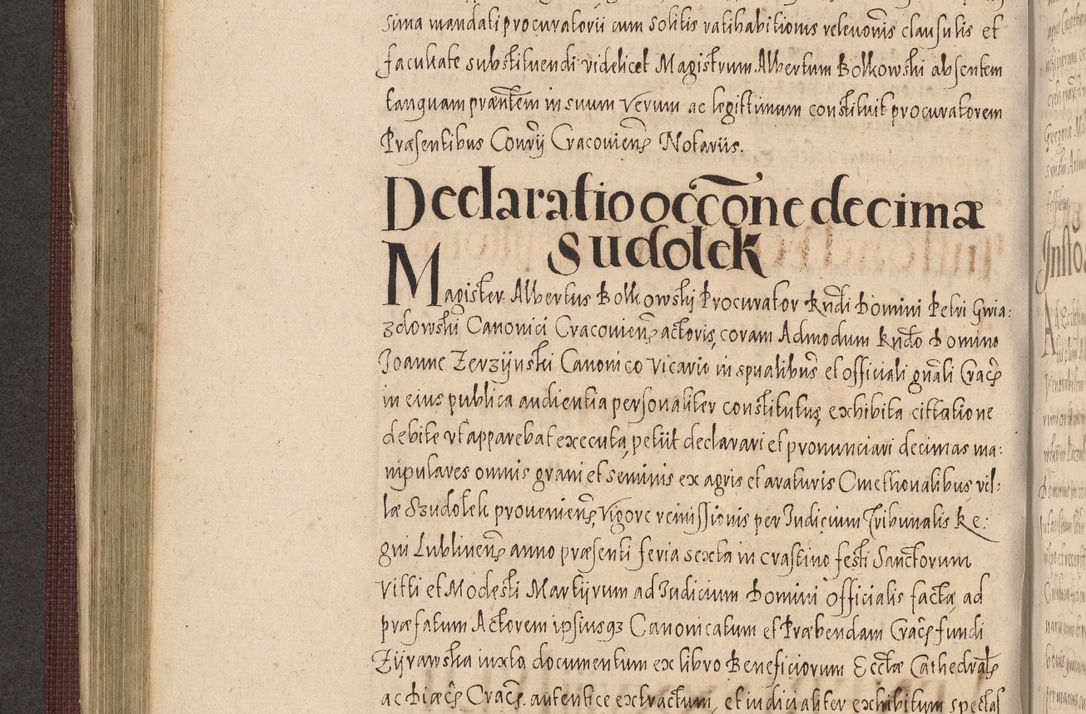 sima mandati procuratorii cum solitis ratihabitionis relevonis clausulis et
facultate substituendi videlicet Magistrum Albertum Bolkowski absentem
tanquam præntem in suum verum ac legittimum constituit procuratorem
Præsentibus Conrÿ Cracovieñ Notariis.
Declaratio occōne decimæ
Sudolek
Magister Albertus Bolkowskÿ Procurator Rndi Domini Petri Gwia:
zdowski Canonici Cracovieñ actoris, coram Admodum Rndo Domino
Joanne Zerzÿnski Canonico Vicario in spualibus et officiali gnali Crac̃
in eius publica audientia personaliter constitutus, exhibita cittatione
debite vt apparebat executa, petiit declarari et pronunciari decimas ma:
nipulares omnis grani et seminis ex agris et araturis Cmethonalibus vil:
læ Szudolek provenieñ, Vigore remissionis per Judicium Tribunalis Re:
gni Lublineñ anno præsenti feria sexta in crastino festi Sanctorum
Vitti et Modesti Martÿrum ad Judicium Domini officialis factæ ad
præfatum Actorem ipsiusq3 Canonicatum et Præbendam Crac̃ fundi
Zÿrawska iuxta documentum ex libro Beneficiorum Ecctæ Cathedral̃
ac Diæc̃ Crac̃ autentice extractum, et iudicialiter exhibitum spectaſ